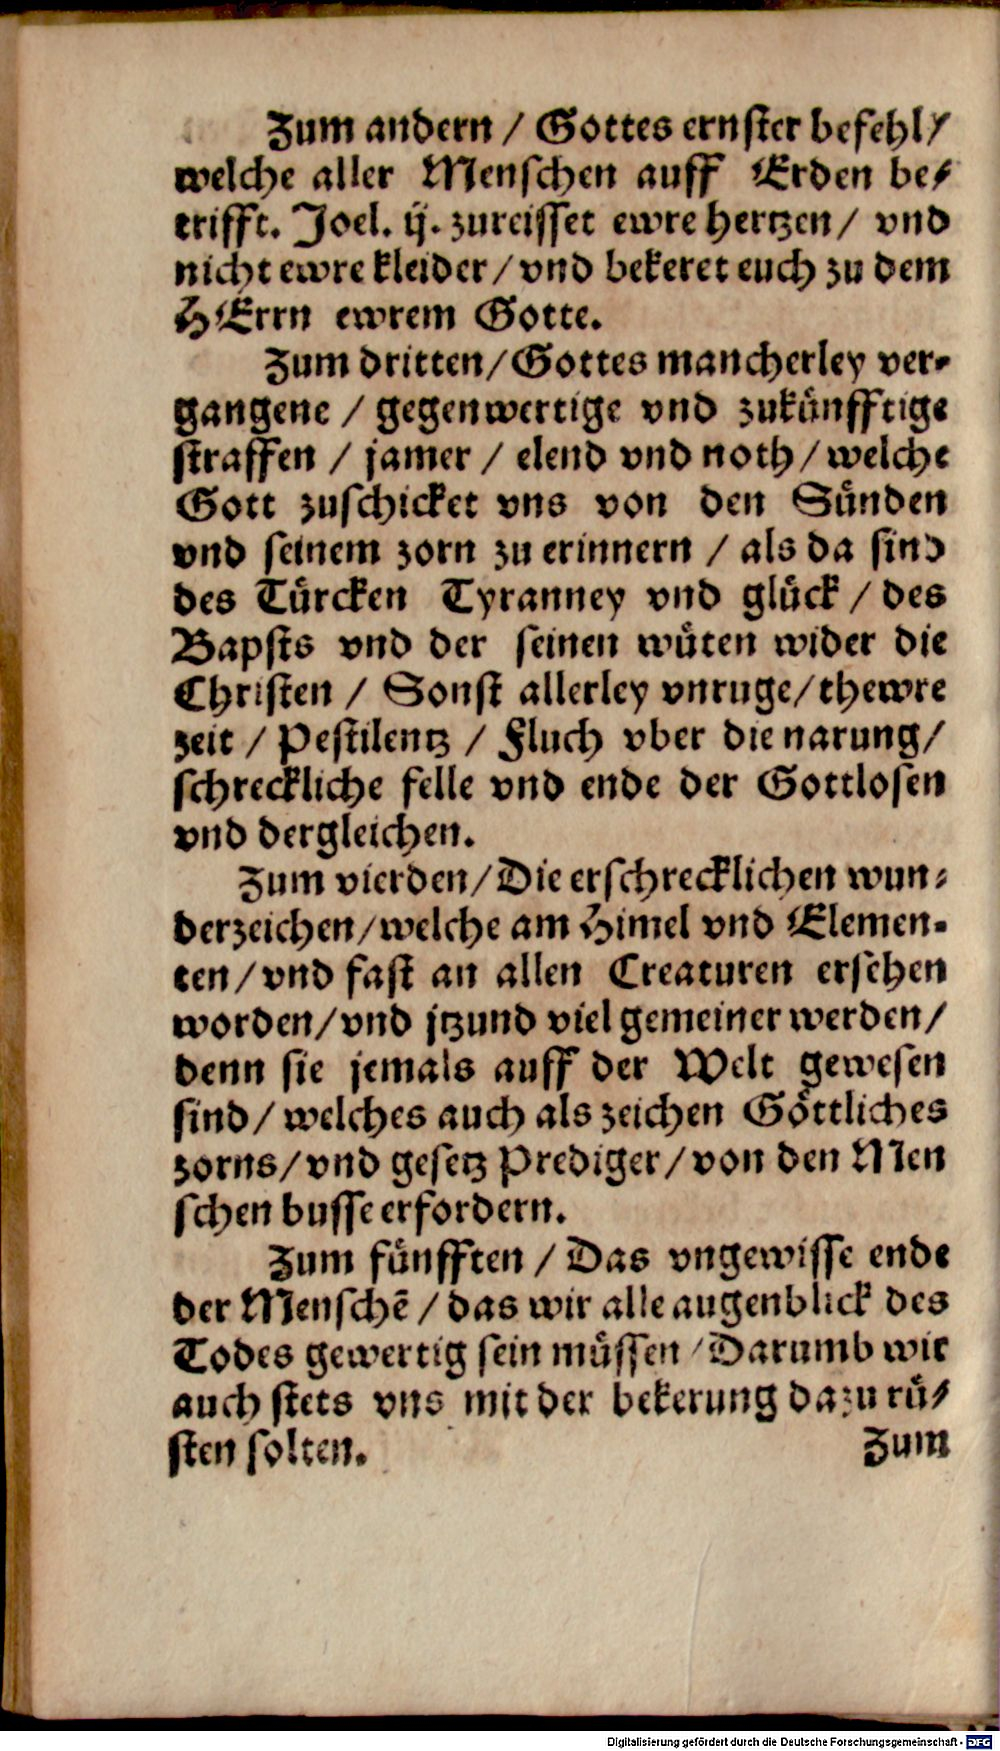 Zum andern / Gottes ernster befehl /
welche aller Menschen auff Erden be-
trifft. Joel. ij. zureisset ewre hertzen / vnd
nicht ewre kleider / vnd bekeret euch zu dem
HErrn ewrem Gotte.
Zum dritten / Gottes mancherley ver-
gangene / gegenwertige vnd zukünfftige
straffen / jamer / elend vnd noth / welche
Gott zuschicket vns von den Sünden
vnd seinem zorn zu erinnern / als da sind
des Türcken Tyranney vnd glück / des
Bapsts vnd der seinen wüten wider die
Christen / Sonst allerley vnruge / thewre
zeit / Pestilentz / Fluch vber die narung /
schreckliche felle vnd ende der Gottlosen
vnd dergleichen.
Zum vierden / Die erschrecklichen wun-
derzeichen / welche am Himel vnd Elemen-
ten / vnd fast an allen Creaturen ersehen
worden / vnd jtzund viel gemeiner werden /
denn sie jemals auff der Welt gewesen
sind / welches auch als zeichen Göttliches
zorns / vnd gesetz Prediger / von den Men
schen busse erfordern.
Zum fünfften / Das vngewisse ende
der Menschē / das wir alle augenblick des
Todes gewertig sein müssen / Darumb wir
auch stets vns mit der bekerung dazu rü-
sten solten.
Zum
Digitalisierung gefördert durch die Deutsche Forschungsgemeinschaft - DFG